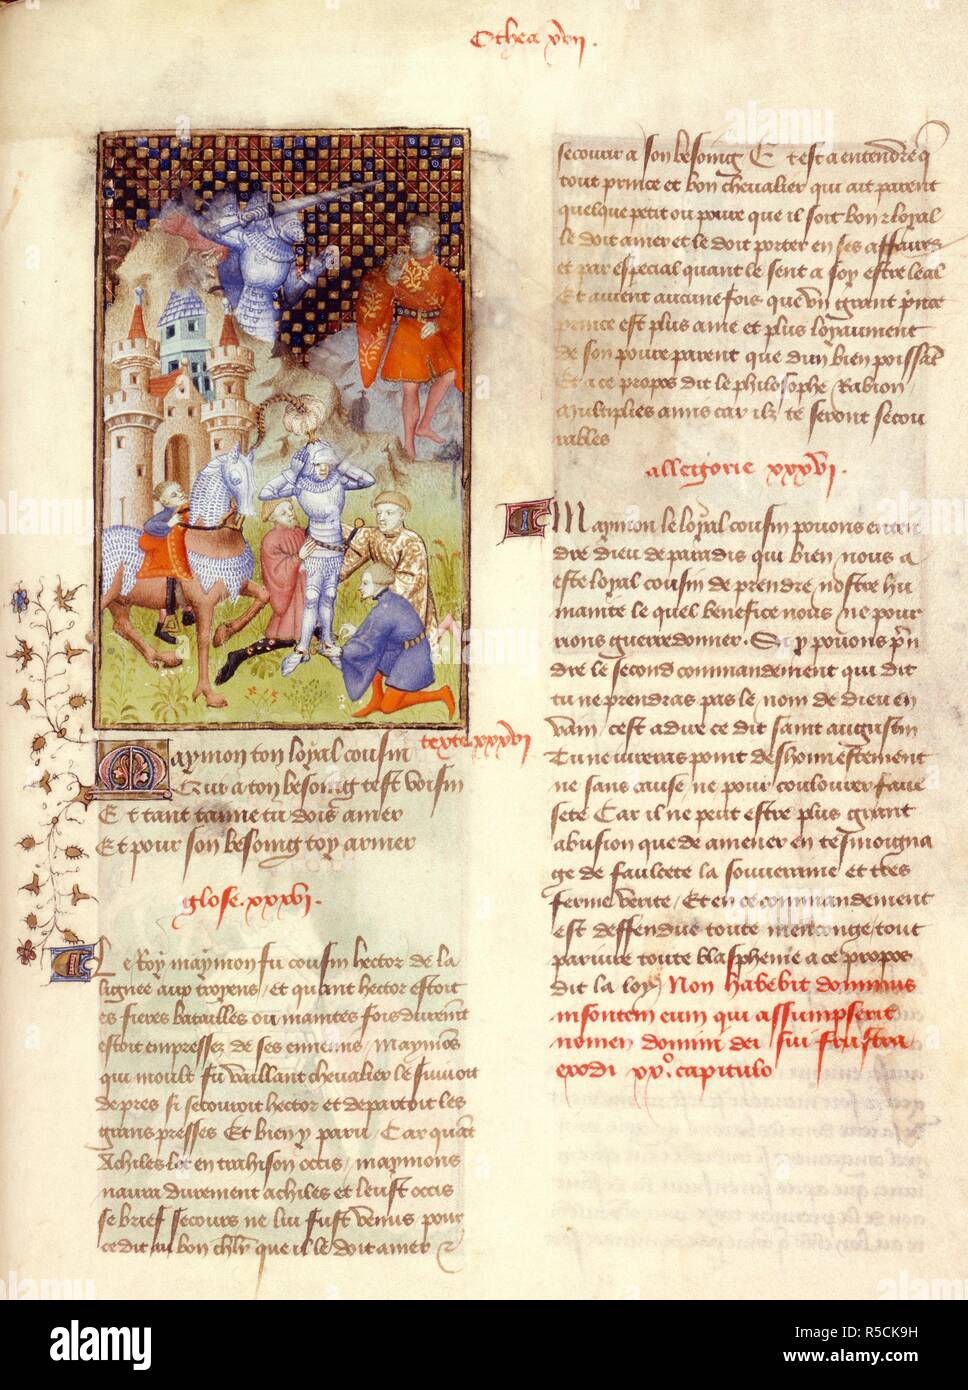 Othea xvii.
Maymon ton loyal cousin
texte.xxxvi
Qui a ton besoing test voisin
Et tant tamne tu dois amer
Et pour son besoing toy armer
glose.xxxvi.
Le Roy maymon fu cousin hector de la
lignee aux troyens et quant hector estoit
es fieres batailles ou maintes fois durement
estoit empressez de ses ennemis maymos
qui moult fu vaillant chevalier le suivoit
de pres si secouroit hector et departoit les
grans presses Et bien y paru Car quat
Achiles lot en trahison occis maymons
navra durement achiles et leust occis
se brief secours ne lui fust venus pour
ce dit au bon chlr que il le doit amer et
secourir a son besoing Et est a entendre q
tout prince et bon chevalier qui ait parent
quelque petit ou povre que il soit bon et loyal
le doit amer et le doit porter en ses affaires
et par especial quant le sent a soy estre leal
Et avient aucune fois que un grant prince
est plus ame et plus loyaument
de son povre parent que dun bien poissant
Et a ce propos dit le philosophe Rabion
Multiplies amis car ilz te seront secou
rables
allegorie xxxvi.
Maymon le loyal cousin povons enten
dre dieu de paradis qui bien nous a
este loyal cousin de prendre nostre hu
manite le quel benefice nous ne pour
rions guerredonner. Si y povons pren
dre le second commandement qui dit
tu ne prendras pas le nom de dieu en
vain cest a dire ce dit saint augustin
Tu ne iureras point deshonnestement
ne sans cause ne pour coulourer faus
sete Car il ne peut estre plus grant
abusion que de amener en tesmoigna
ge de faulcete la souveraine et tres
ferme verite Et en ce commandement
est deffendue toute mencongne tout
pariure toute blaspheme a ce propos
dit la loy Non habebit dominus
insontem eum qui assumpserit
nomen domini dei sui frustra
exodi xx°. capitulo
alamy
alamy stock photo
R5CK9H
www.alamy.com